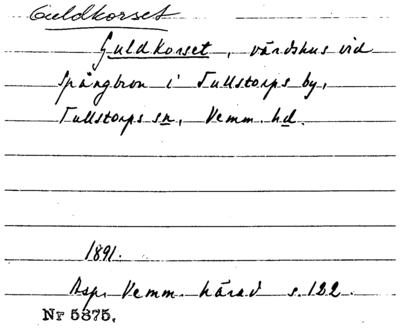 Guldkorset
Guldkorset, värdshus vid
Spångbron i Tullstorps by,
Tullstorps sn, Vemm. hd.
1891.
Asp. Vemm. härad s. 122.
Nr 5875.